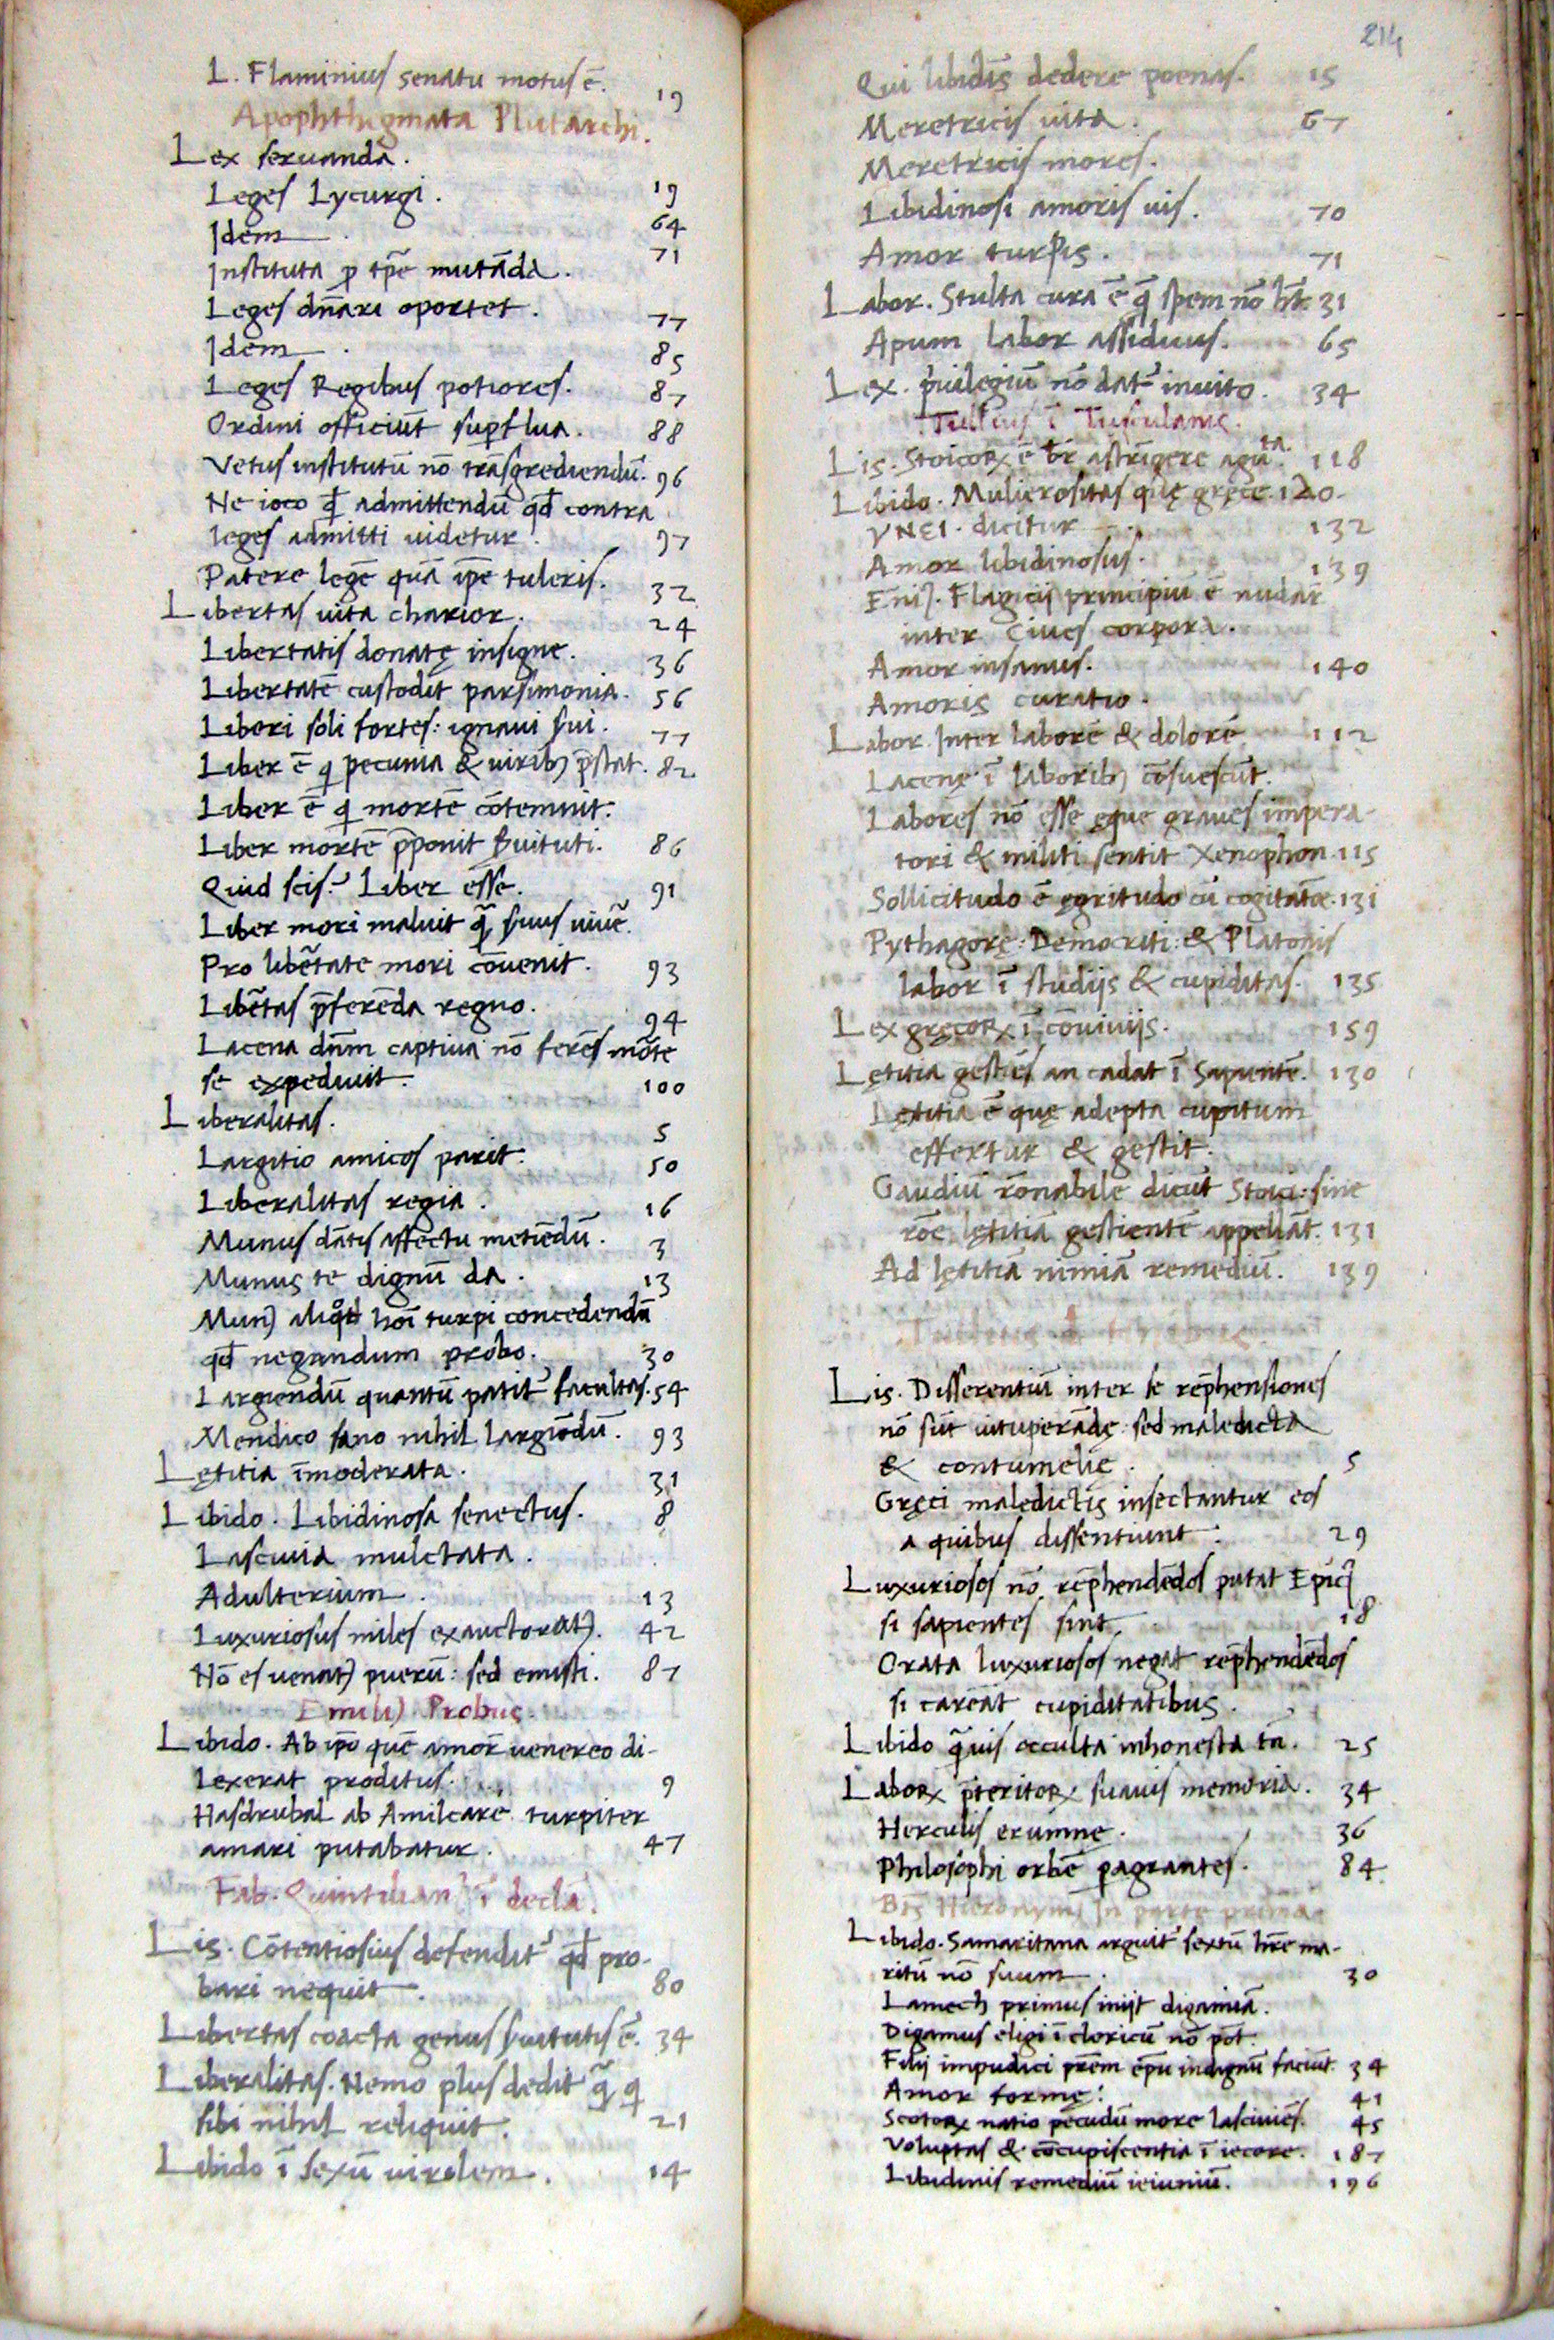 L. Flaminius senatu motus ē. 19
Apophthegmata Plutarchi.
Lex seruanda.
Leges Lycurgi. 19
Idem. 64
Instituta ꝓ tp̄e mutāda. 71
Leges dn̄ari oportet. 77
Idem. 85
Leges Regibus potiores. 87
Ordini officiūt suꝑflua. 88
Vetus institutū nō trāsgrediendū. 96
Ne ioco qd̄ admittendū qd̄ contra
leges admitti uidetur. 97
Patere legē quā ip̄e tuleris. 32
Libertas uita charior. 24
Libertatis donatę insigne. 36
Libertatē custodit parsimonia. 56
Liberi soli fortes: ignaui s̄ui. 77
Liber ē q pecunia & uirib) p̄stat. 82
Liber ē q mortē cōtemnit.
Liber mortē p̄ponit s̄uituti. 86
Quid scis? Liber esse. 91
Liber mori maluit q̄ s̄uus uiuē.
Pro libētate mori cōuenit. 93
Libētas p̄ferēda regno. 94
Lacena dn̄m captiua nō ferēs mōte
se expediuit. 100
Liberalitas. 5
Largitio amicos parit. 50
Liberalitas regia. 16
Munus dātis affectu metiēdū. 3
Munus te dignū da. 13
Mun) aliqd̄ hoī turpi concedendū
qd̄ negandum probo. 30
Largiendū quantū patit᷑ facultas. 54
Mendico sano nihil largiōdū. 93
Lętitia īmoderata. 31
Libido. Libidinosa senectus. 8
Lasciuia mulctata.
Adulterium. 13
Luxuriosus miles exauctorat). 42
Nō es uenat) puerū: sed emisti. 87
Emili) Probus.
Libido. Ab ip̄o quē amōr uenereo di-
lexerat proditus. 9
Hasdrubal ab Amilcare turpiter
amari putabatur. 47
Fab. Quintilian) ī decla.
Lis. Cōtentiosius defendit᷑ qd̄ pro-
bari nequit. 80
Libertas coacta genus s̄uitutis ē. 34
Liberalitas. Nemo plus dedit q̄ q
sibi nihil reliquit. 21
Libido ī sexū uirilem. 14
214
Qui libidīs dedere poenas. 15
Meretricis uita. 67
Meretricis mores.
Libidinosi amoris uis. 70
Amor turpis. 71
Labor. Stulta cura ē q̄ spem nō hꝫ. 31
Apum labor assiduus. 65
Lex. priuilegiū nō dat᷑ inuito. 34
Tullius ī Tusculanis.
Lis. Stoicoꝝ ē br̄ astrīgere aguta. 118
Libido. Mulierositas quę gręce 120
ΥΝΕΙ. dicitur 132
Amor libidinosus. 139
Flagicij principiū ē nudār
inter Ciues corpora.
Amor insanus. 140
Amoris curatio.
Labor. Inter laborē & dolorē 112
Lacenę ī laborib) cōsuescūt.
Labores nō esse ęque graues impera-
tori & militi sentit Xenophon. 115
Sollicitudo ē ęgritudo cū cogitatōe. 131
Pythagorę: Democriti: & Platonis
labor ī studijs & cupiditas. 135
Lex gręcoꝝ ī cōuiuijs. 159
Lętitia gestiēs an cadat ī Sapientē. 130
Lętitia ē quę adepta cupitum
effertur & gestit.
Gaudiū rōnabile dicūt Stoici: sine
rōe lętitiā gestientē appellāt. 131
Ad lętitiā nimiā remediū. 139
Lis. Differentiū inter se rep̄hensiones
nō sūt uituperādę sed maledicta
& contumelię. 5
Gręci maledictis insectantur eos
a quibus dissentiunt. 29
Luxuriosos nō rep̄hendēdos putat Epic)
si sapientes sint 18
Orata luxuriosos negat rep̄hendēdos
si careāt cupiditatibus.
Libido q̄uis occulta inhonesta tn̄. 25
Laboꝝ p̄teritoꝝ suauis memoria. 34
Herculis erumnę. 36
Philosophi orbē ꝑagrantes. 84
Bt̄s Hieronym) In parte prima
Libido. Samaritana arguit᷑ sextū hr̄e ma-
ritū nō suum. 30
Lamech primus inijt digamiā.
Digamus eligi ī clericū nō pōt.
Filij impudici pr̄em ep̄u indignū faciūt. 34
Amor formę. 41
Scotoꝝ natio pecudū more lasciuiēs. 45
Voluptas & cōcupiscentia ī iecore. 187
Libidinis remediū ieiuniū. 196